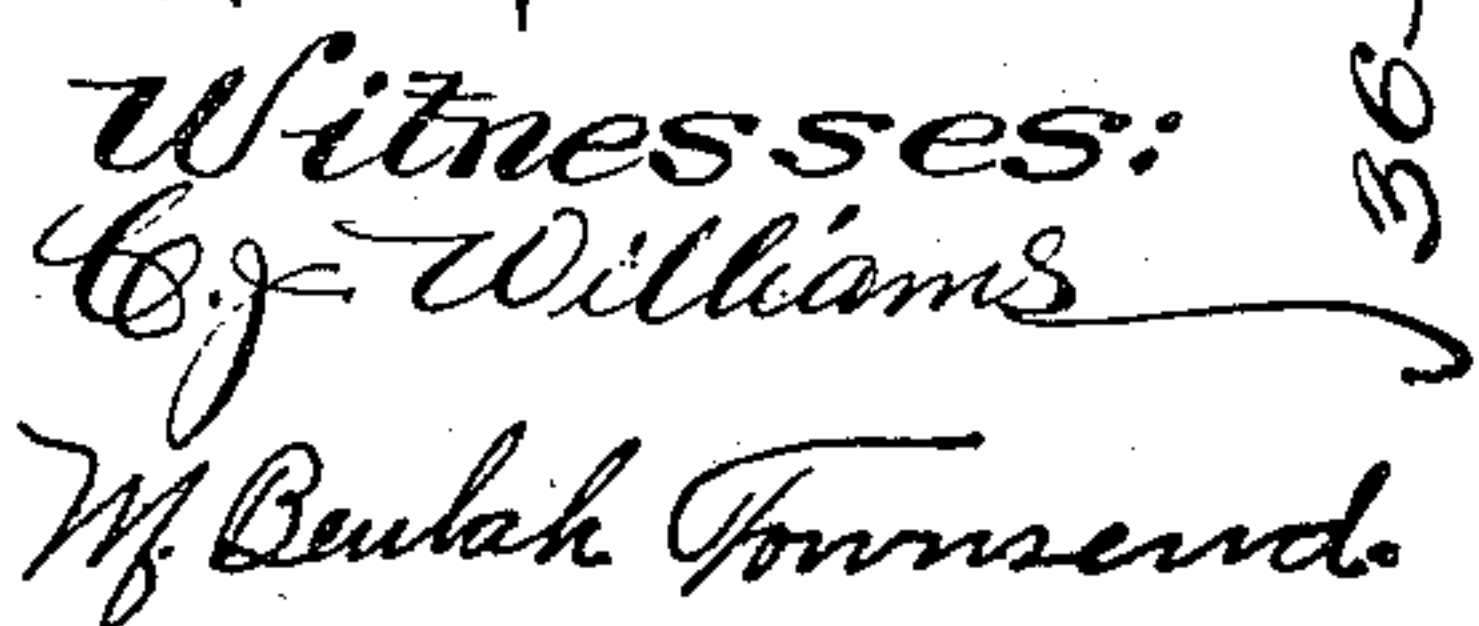 Witnesses:
C. J. Williams
M. Beulah Townsend.
36